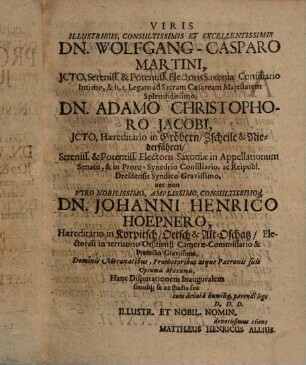 VIRIS
ILLUSTRIBUS, CONSULTISSIMIS ET EXCELLENTISSIMIS
DN. WOLFGANG-CASPARO
MARTINI,
JCTO, Sereniss. & Potentiss. Electoris Saxoniæ Consiliario
Intimo, & h. t. Legato ad Sacram Cæsaream Majestatem
Splendidissimo,
DN. ADAMO CHRISTOPHO-
RO JACOBI,
JCTO, Hæreditario in Gröbern/Zscheile & Nie-
derfähren/
Sereniss. & Potentiss. Electoris Saxoniæ in Appellationum
Senatu, & in Proto-Synedrio Consiliario, ac Reipubl.
Dresdensis Syndico Gravissimo,
nec non
VIRO NOBILISSIMO, AMPLISSIMO, CONSULTISSIMOQ;
DN. JOHANNI HENRICO
HOEPNERO,
Hæreditario in Korpitsch/Oetsch & Alt-Oschatz/ Ele-
ctorali in territorio Ositiensi Cameræ-Commissario &
Præfecto Gravissimo,
Dominis Mecænatibus, Promotoribus atque Patronis suis
Optumis Maxumis,
Hanc Disputationem Inauguralem
simulq; se ac studia sua
cum devota humiliq; parendi lege
D. D. D.
ILLUSTR. ET NOBIL. NOMIN.
devotissimus cliens
MATTHÆUS HENRICUS ALLIUS.